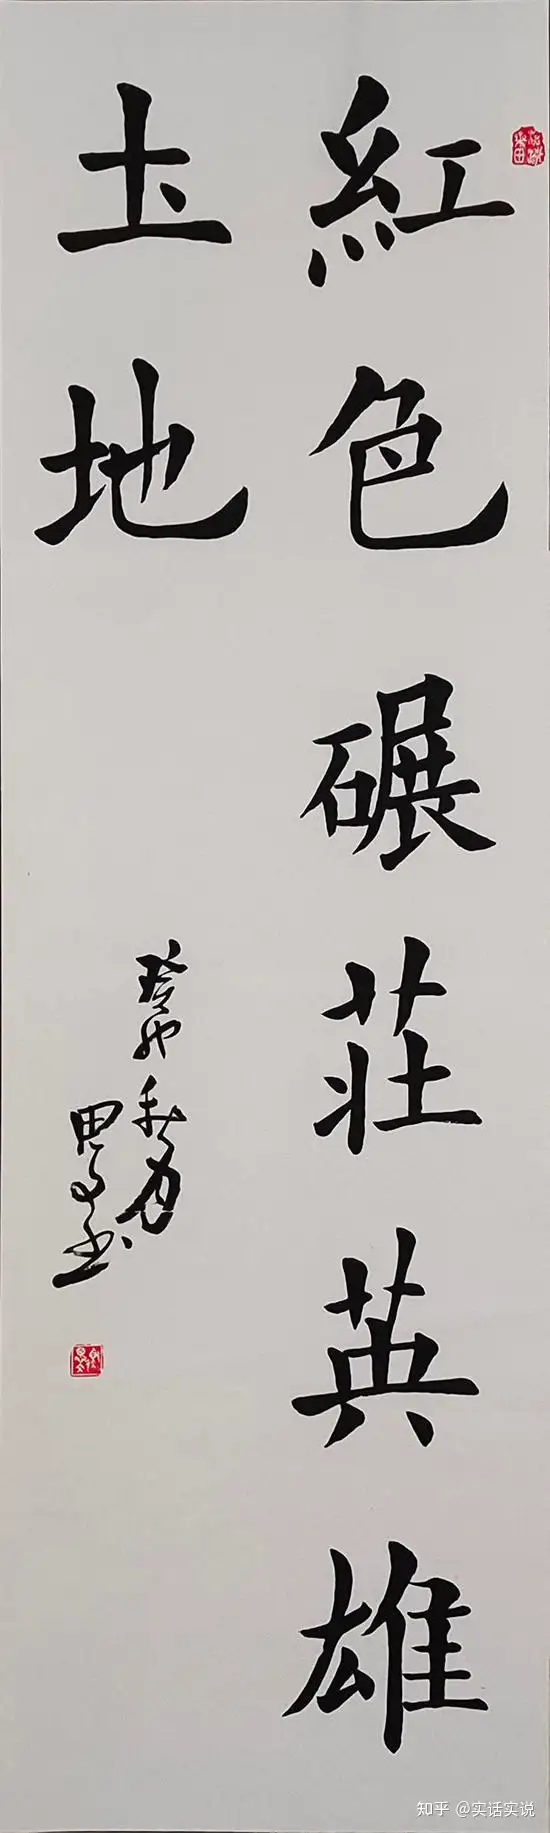 紅色碾莊英雄
土地
癸卯秋月
知乎 @实话实说